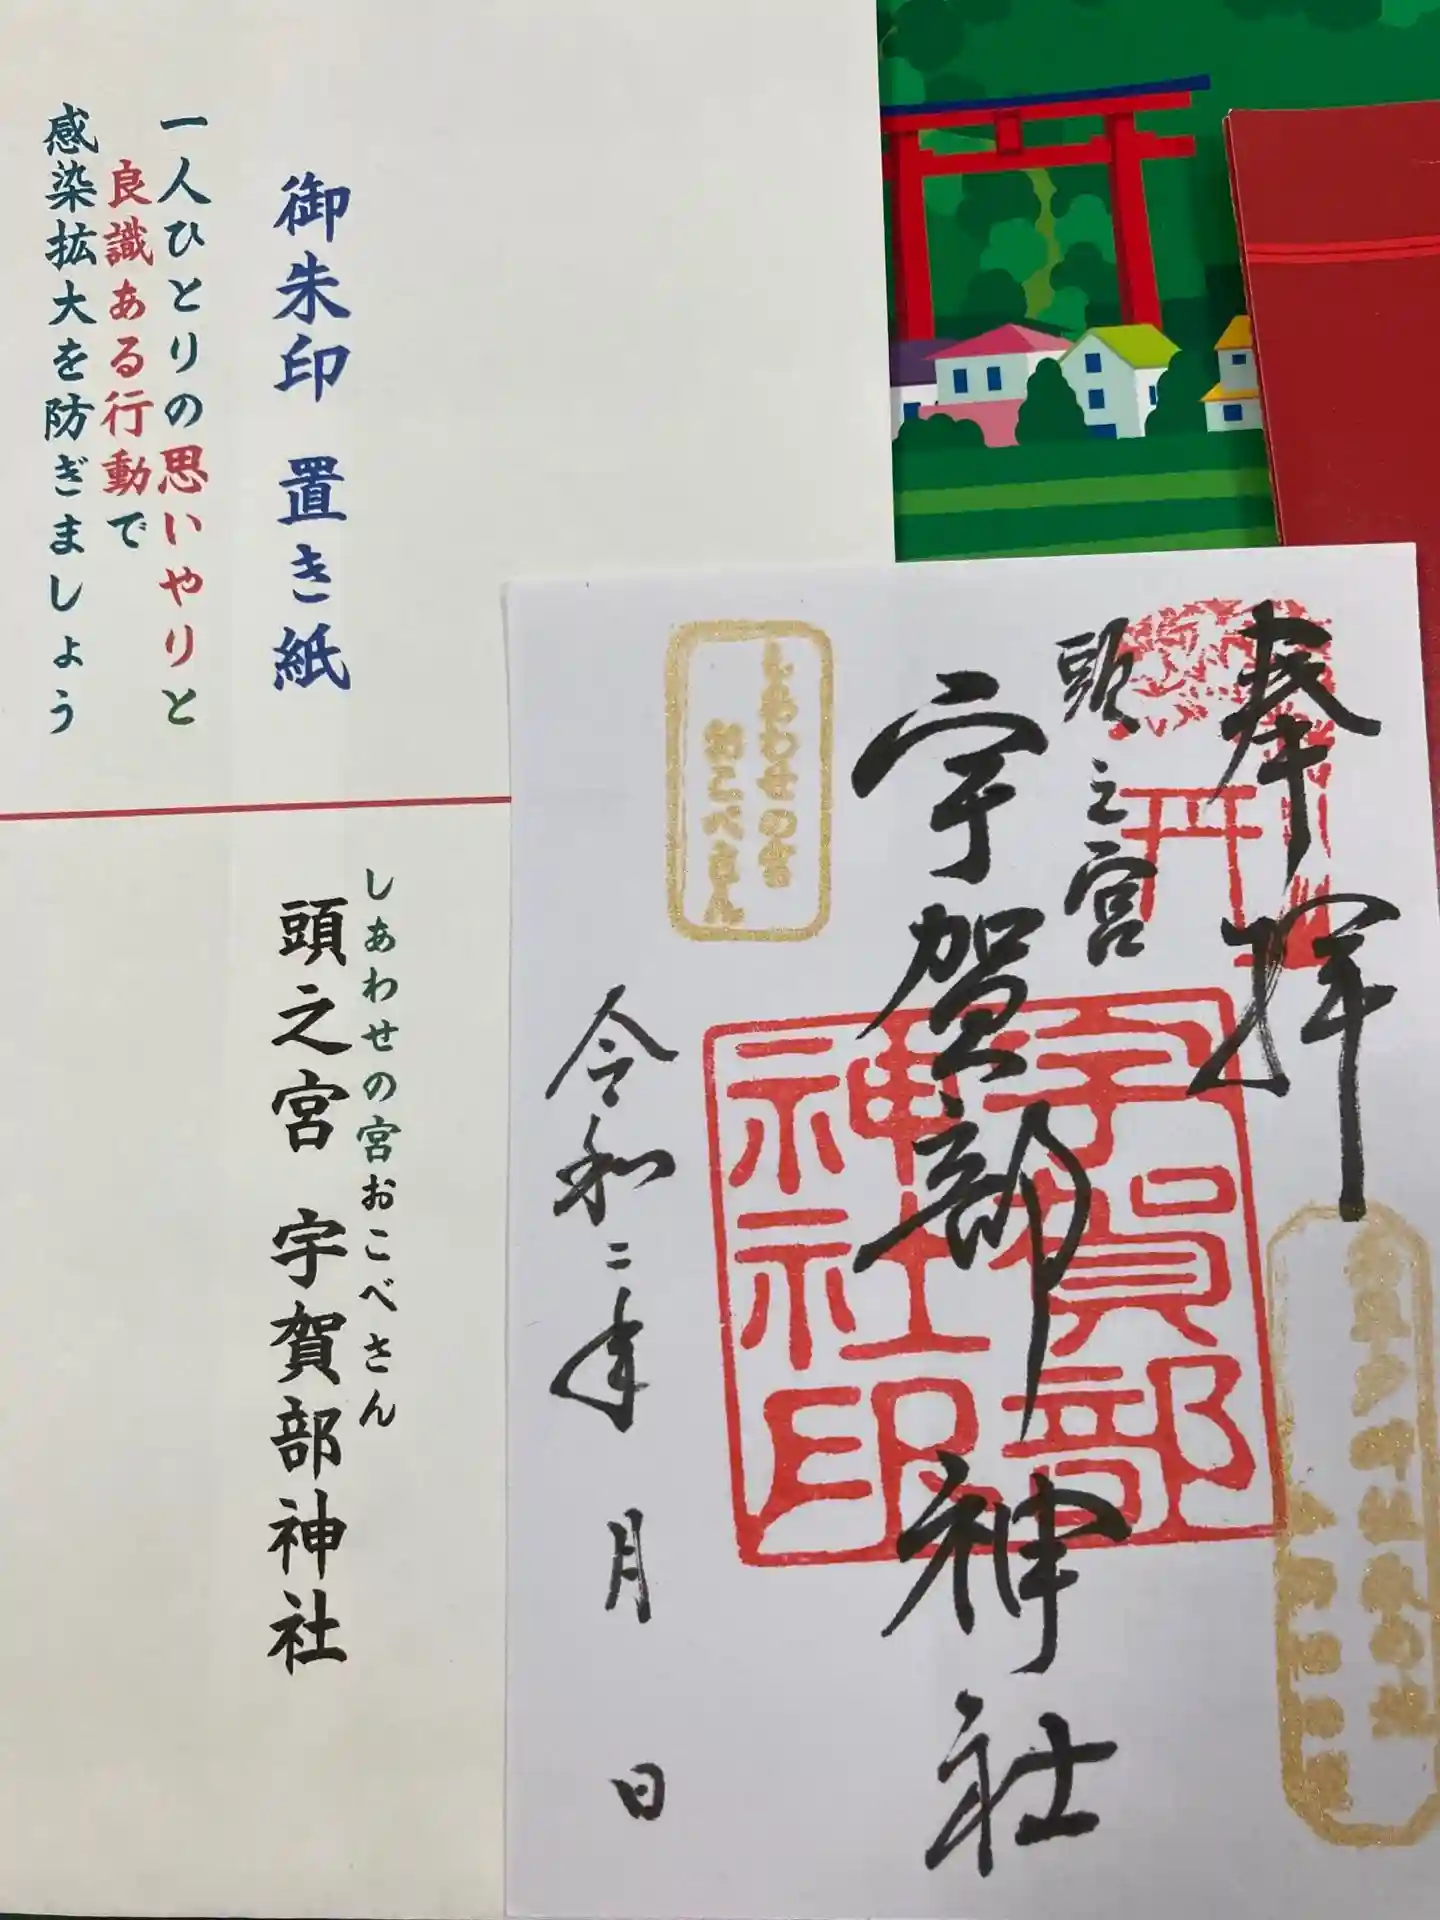 奉拝
頭之宮
宇賀部神社
宇賀部
神社印
しあわせの宮
おこべさん
令和二年 月 日
御朱印 置き紙
一人ひとりの思いやりと
良識ある行動で
感染拡大を防ぎましょう
しあわせの宮おこべさん
頭之宮 宇賀部神社